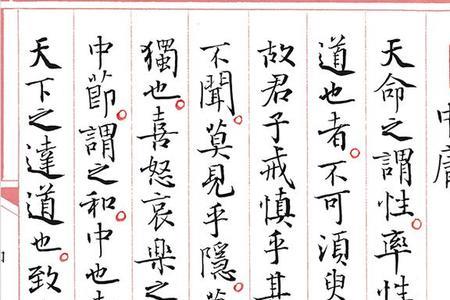 中庸
天命之謂性。率性
道也者。不可須臾
故君子戒慎乎其
不聞。莫見乎隱。莫
獨也。喜怒哀樂之
中節。謂之和。中也
天下之達道也。致